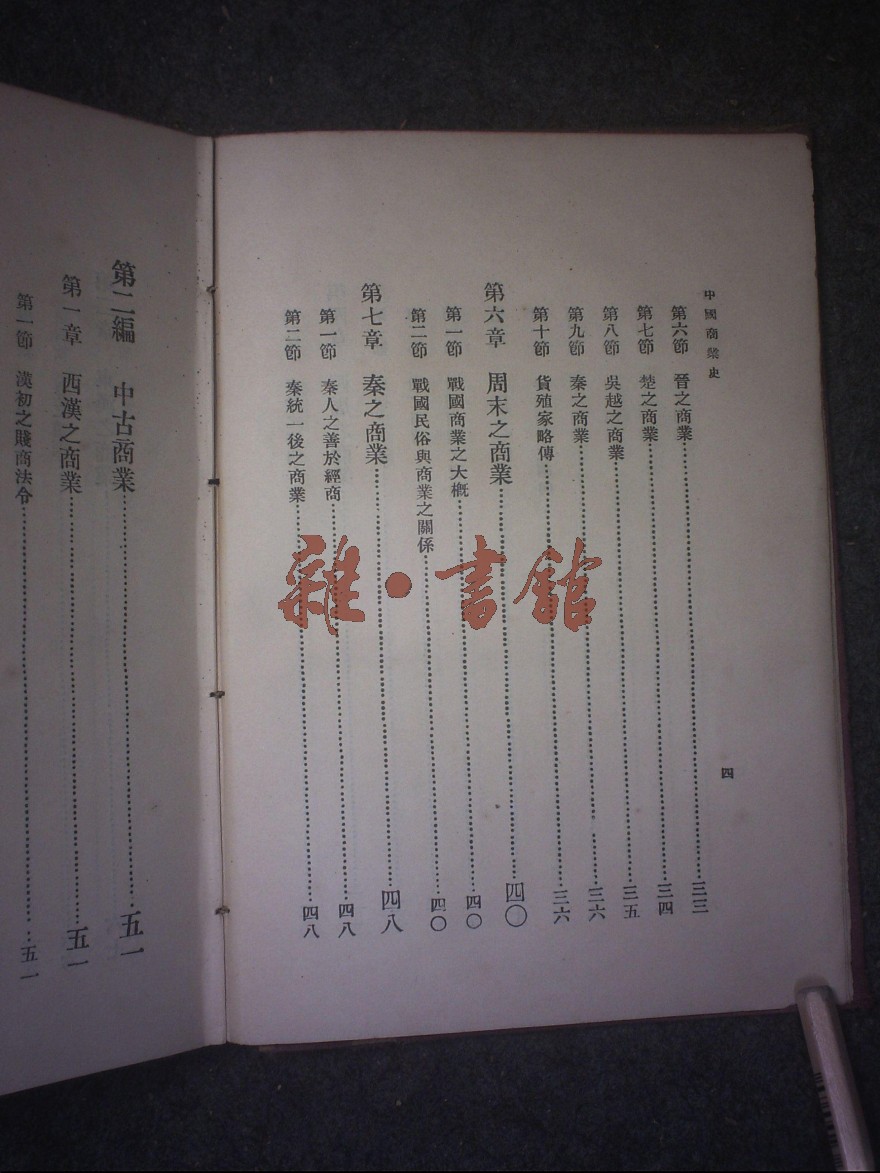 中國商業史
四
第六節 晉之商業 三三
第七節 楚之商業 三四
第八節 吳越之商業 三五
第九節 秦之商業 三六
第十節 貨殖家略傳 三六
第六章 周末之商業 四〇
第一節 戰國商業之大槪 四〇
第二節 戰國民俗與商業之關係 四〇
第七章 秦之商業 四八
第一節 秦人之善於經商 四八
第二節 秦統一後之商業 四八
第二編 中古商業 五一
第一章 西漢之商業 五一
第一節 漢初之賤商法令 五一
雜·書館